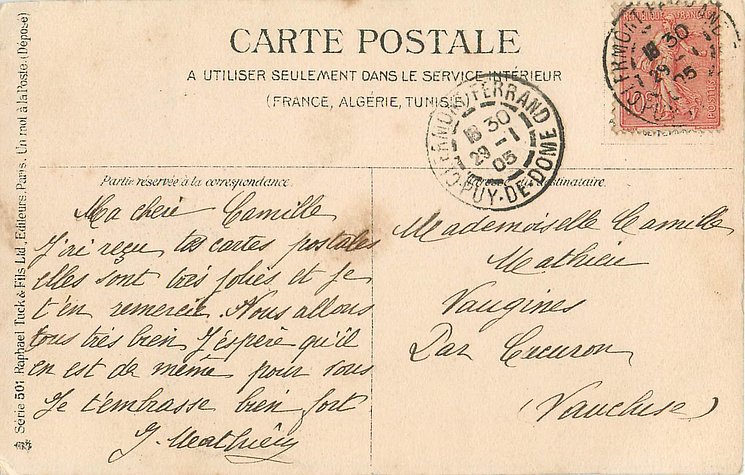 CARTE POSTALE
A UTILISER SEULEMENT DANS LE SERVICE INTÉRIEUR
(FRANCE, ALGÉRIE, TUNISIE)
CLERMONT-FERRAND
18 30
29 - 1
05
PUY-DE-DOME
Partie réservée à la correspondance.
Ma chere Camille
J'ai reçu tes cartes postales
elles sont très jolies et je
t'en remercie. Nous allons
tous très bien J'espère qu'il
en est de même pour vous
Je t'embrasse bien fort
J. Mathieu
destinataire.
Mademoiselle Camille
Mathieu
Vaugines
Par Cucuron
(Vaucluse)
Série 501 Raphael Tuck & Fils Ltd, Editeurs, Paris. Un mot à la Poste. (Déposé)